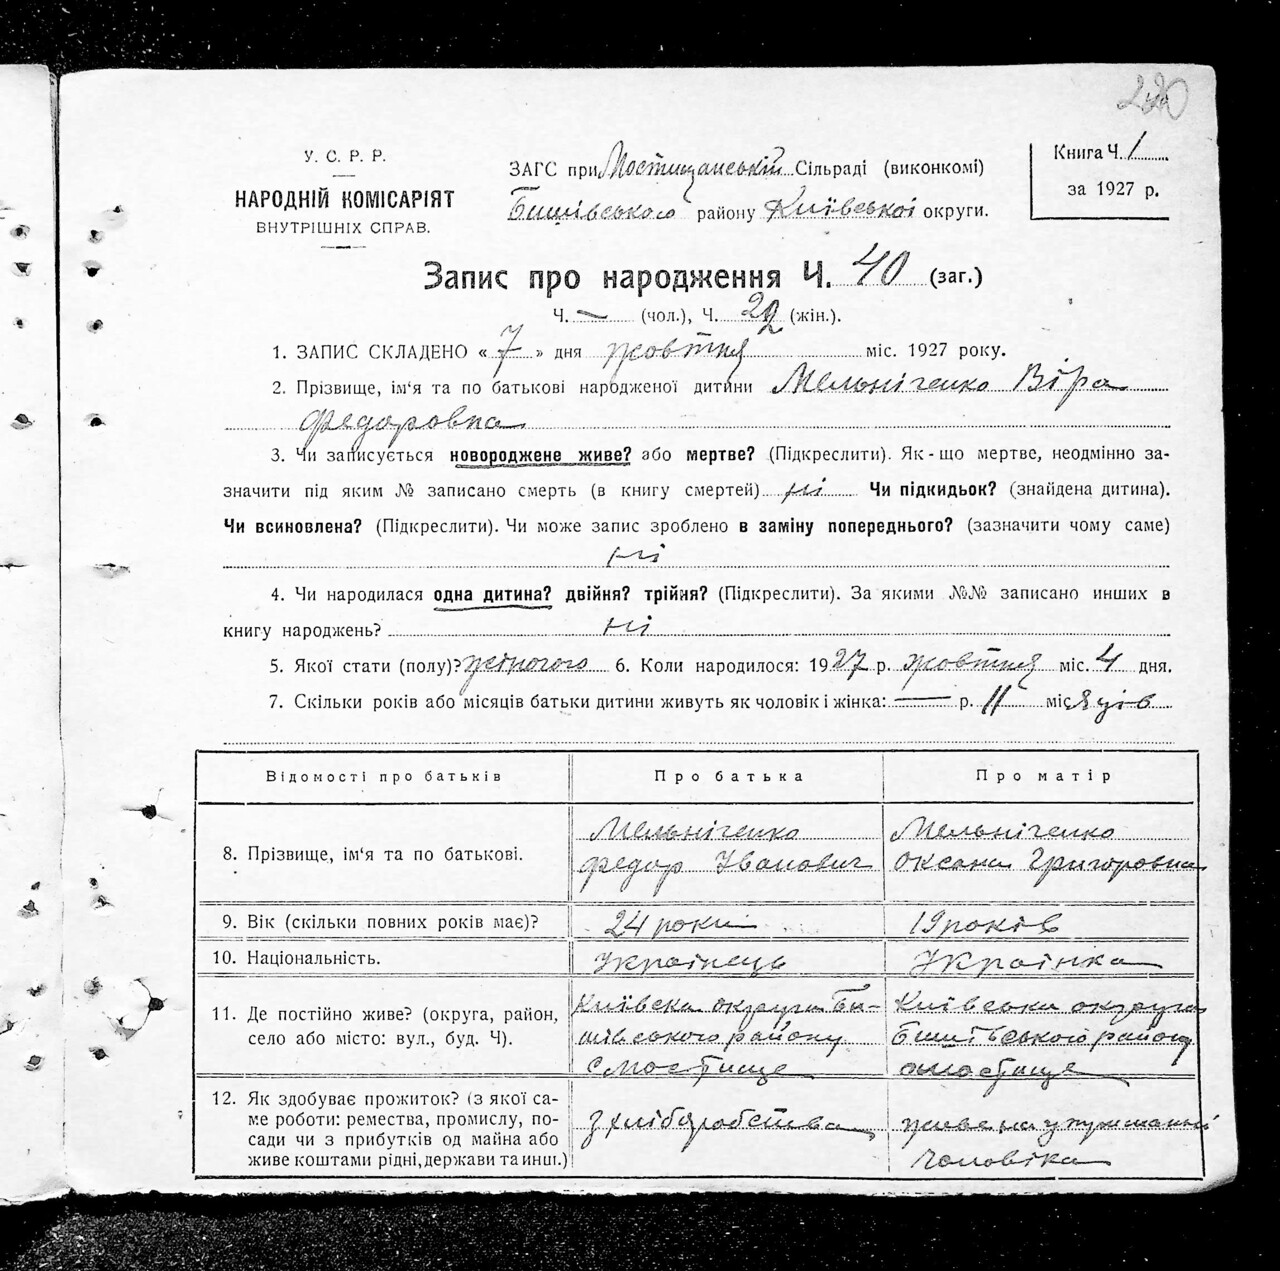 220
У. С. Р. Р.
НАРОДНІЙ КОМІСАРІЯТ
ВНУТРІШНІХ СПРАВ.
ЗАГС при Мостищанській Сільраді (виконкомі)
Бишівського району Київської округи.
Книга Ч. 1
за 1927 р.
Запис про народження Ч. 40 (заг.)
Ч. — (чол.), Ч. 22 (жін.).
1. ЗАПИС СКЛАДЕНО « 7 » дня жовтня міс. 1927 року.
2. Прізвище, ім‘я та по батькові народженої дитини Мельніченко Віра
Федоровна
3. Чи записується новороджене живе? або мертве? (Підкреслити). Як-що мертве, неодмінно за-
значити під яким № записано смерть (в книгу смертей) ні Чи підкидьок? (знайдена дитина).
Чи всиновлена? (Підкреслити). Чи може запис зроблено в заміну попереднього? (зазначити чому саме)
ні
4. Чи народилася одна дитина? двійня? трійня? (Підкреслити). За якими №№ записано инших в
книгу народжень? ні
5. Якої стати (полу)? жіночого 6. Коли народилося: 1927 р. жовтня міс. 4 дня.
7. Скільки років або місяців батьки дитини живуть як чоловік і жінка: — р. 11 місяців
Відомості про батьків Про батька Про матір
8. Прізвище, ім‘я та по батькові.
Мельніченко
Федор Іванович
Мельніченко
Оксана Григоровна
9. Вік (скільки повних років має)? 24 роки 19 років
10. Національність. Українець Українка
11. Де постійно живе? (округа, район,
село або місто: вул., буд. Ч).
Київска округа Би-
шівського району
с Мостище
Київська округа
Бишівського району
с мостище
12. Як здобуває прожиток? (з якої са-
ме роботи: ремества, промислу, по-
сади чи з прибутків од майна або
живе коштами рідні, держави та инш.)
з хліборобства
живе на утриманні
чоловіка